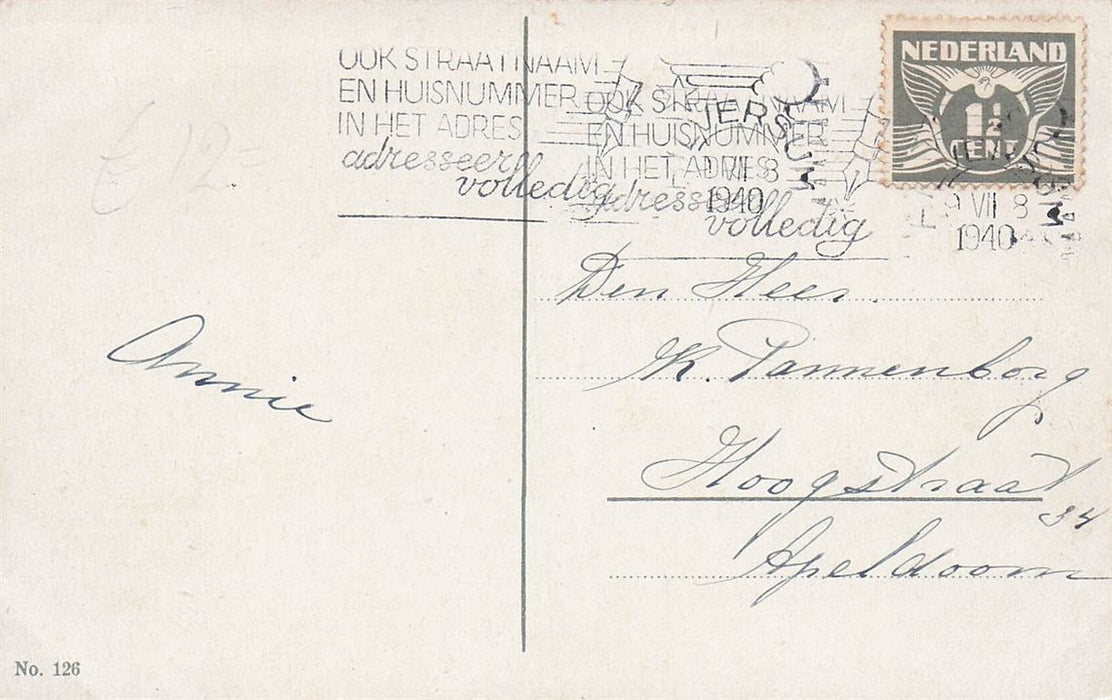 OOK STRAATNAAM
EN HUISNUMMER
IN HET ADRES
adresseer
volledig
OOK STRAATNAAM
EN HUISNUMMER
IN HET ADRES
adresseer
volledig
VII 8
1940
NEDERLAND
1½
CENT
9 VII 8
1940
€ 12-
Annie
Den Heer.
K. Pannenborg
Hoogstraat
34
Apeldoorn
No. 126